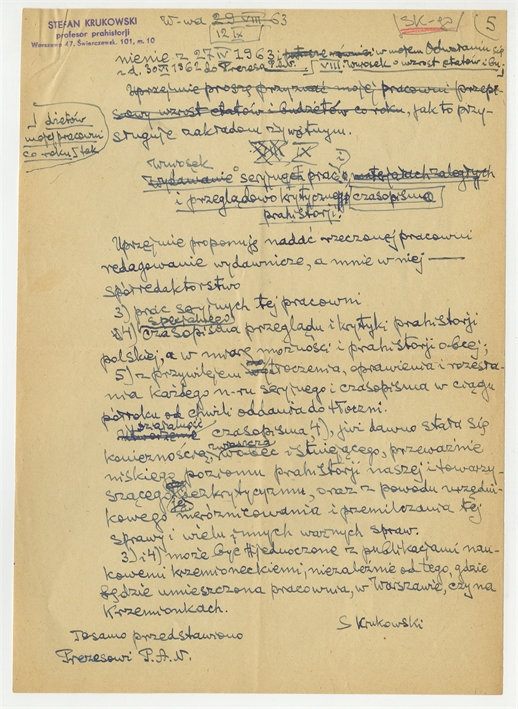 STEFAN KRUKOWSKI
profesor prahistorji
Warszawa 47, Świerczewsk. 101, m. 10
W-wa 29 VIII 63
12 IX
SK-20
5
nienie z 27 IV 1963; w mojem Odwołaniu się
z d. 30 VI 1962 do Prezesa P.A.N. VIII Wniosek o wzrost etatów i bu-
Uprzejmie proszę przyznać mojej pracowni przepi-
sowy wzrost etatów i budżetów co roku, jak to przy-
dżetów
mojej pracowni
co roku, jak
sługuje zakładom żywotnym.
IX
Wniosek
Wydawanie seryjnych prac
i przeglądowo krytycznego czasopisma
prahistorji.
Uprzejmie proponuję nadać rzeczonej pracowni
redagowanie wydawnicze, a mnie w niej —
spółredaktorstwo
3) prac seryjnych tej pracowni
specjalnego
4) czasopisma przeglądu i krytyki prahistorji
polskiej, a w miarę możności i prahistorji obcej;
5) z przywilejem tłoczenia, oprawienia i rozesła-
nia każdego n-ru seryjnego i czasopisma w ciągu
półroku od chwili oddania do tłoczni.
Działalność
czasopisma 4), jivi dawno stała się
zwłaszcza
koniecznością, wobec istniejącego, przeważnie
niskiego poziomu prahistorji naszej i towarzy-
szącego bezkrytycyzmu, oraz z powodu urzędni-
kowego nieróżnicowania i przemilczania tej
sprawy i wielu innych ważnych spraw.
3) i 4) może być zjednoczone z publikacjami nau-
kowemi krzemioneckiemi, niezależnie od tego, gdzie
będzie umieszczona pracownia, w Warszawie, czy na
Krzemionkach.
S Krukowski
Tosamo przedstawiono
Prezesowi P.A.N.